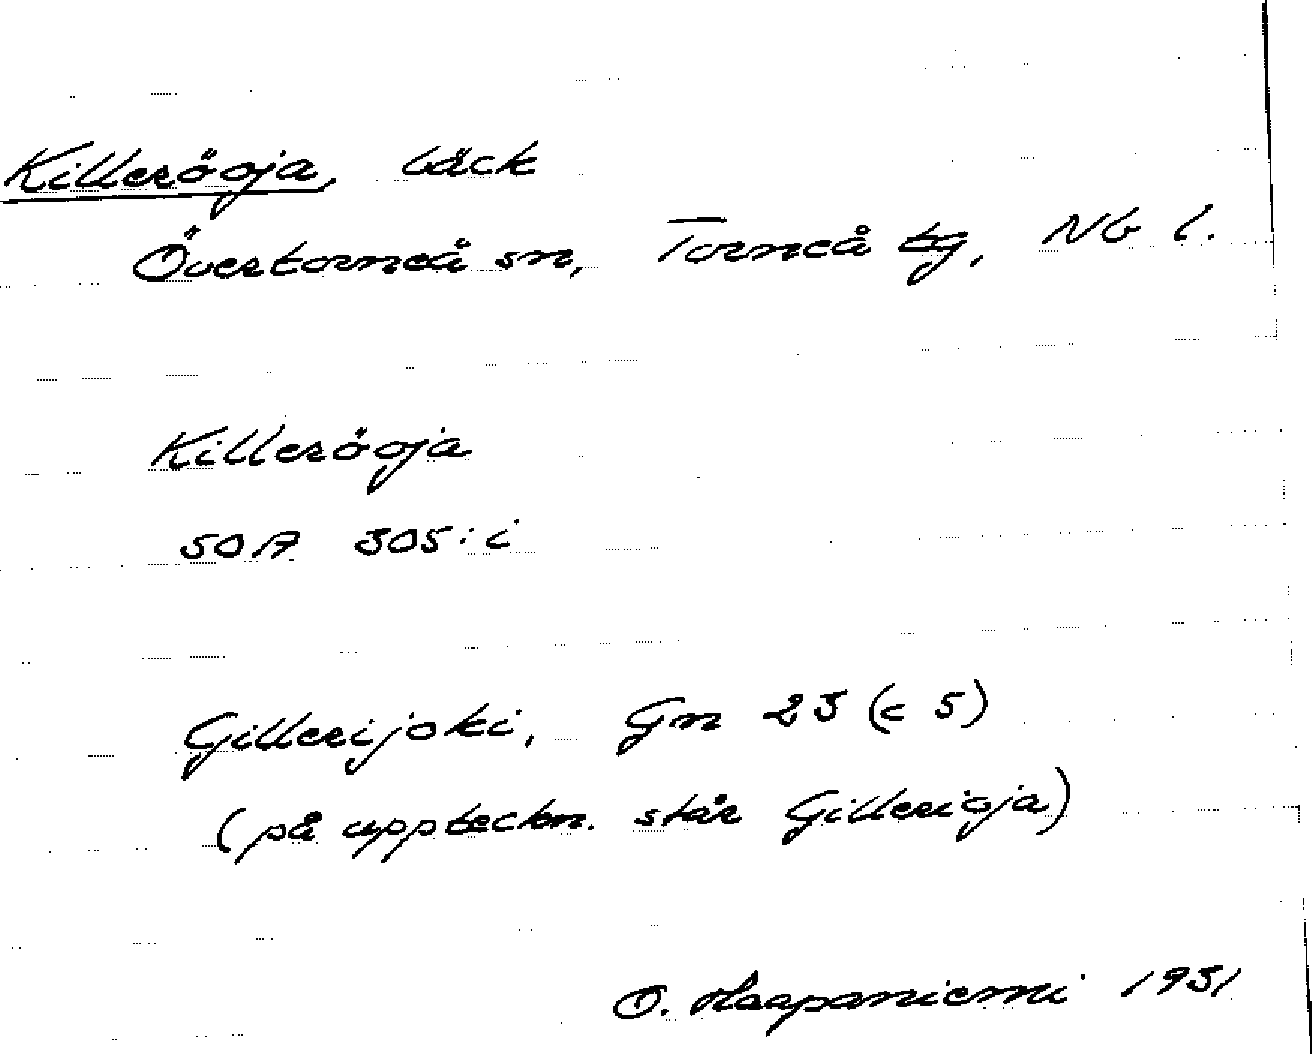 Killeröoja, bäck
Övertorneå sn, Torneå tg, Nb l.
Killeröoja
SOA 305:i
Gillerijoki, Gm 23 (c 5)
(på uppteckn. står Gillerioja)
O. Haapaniemi 1931